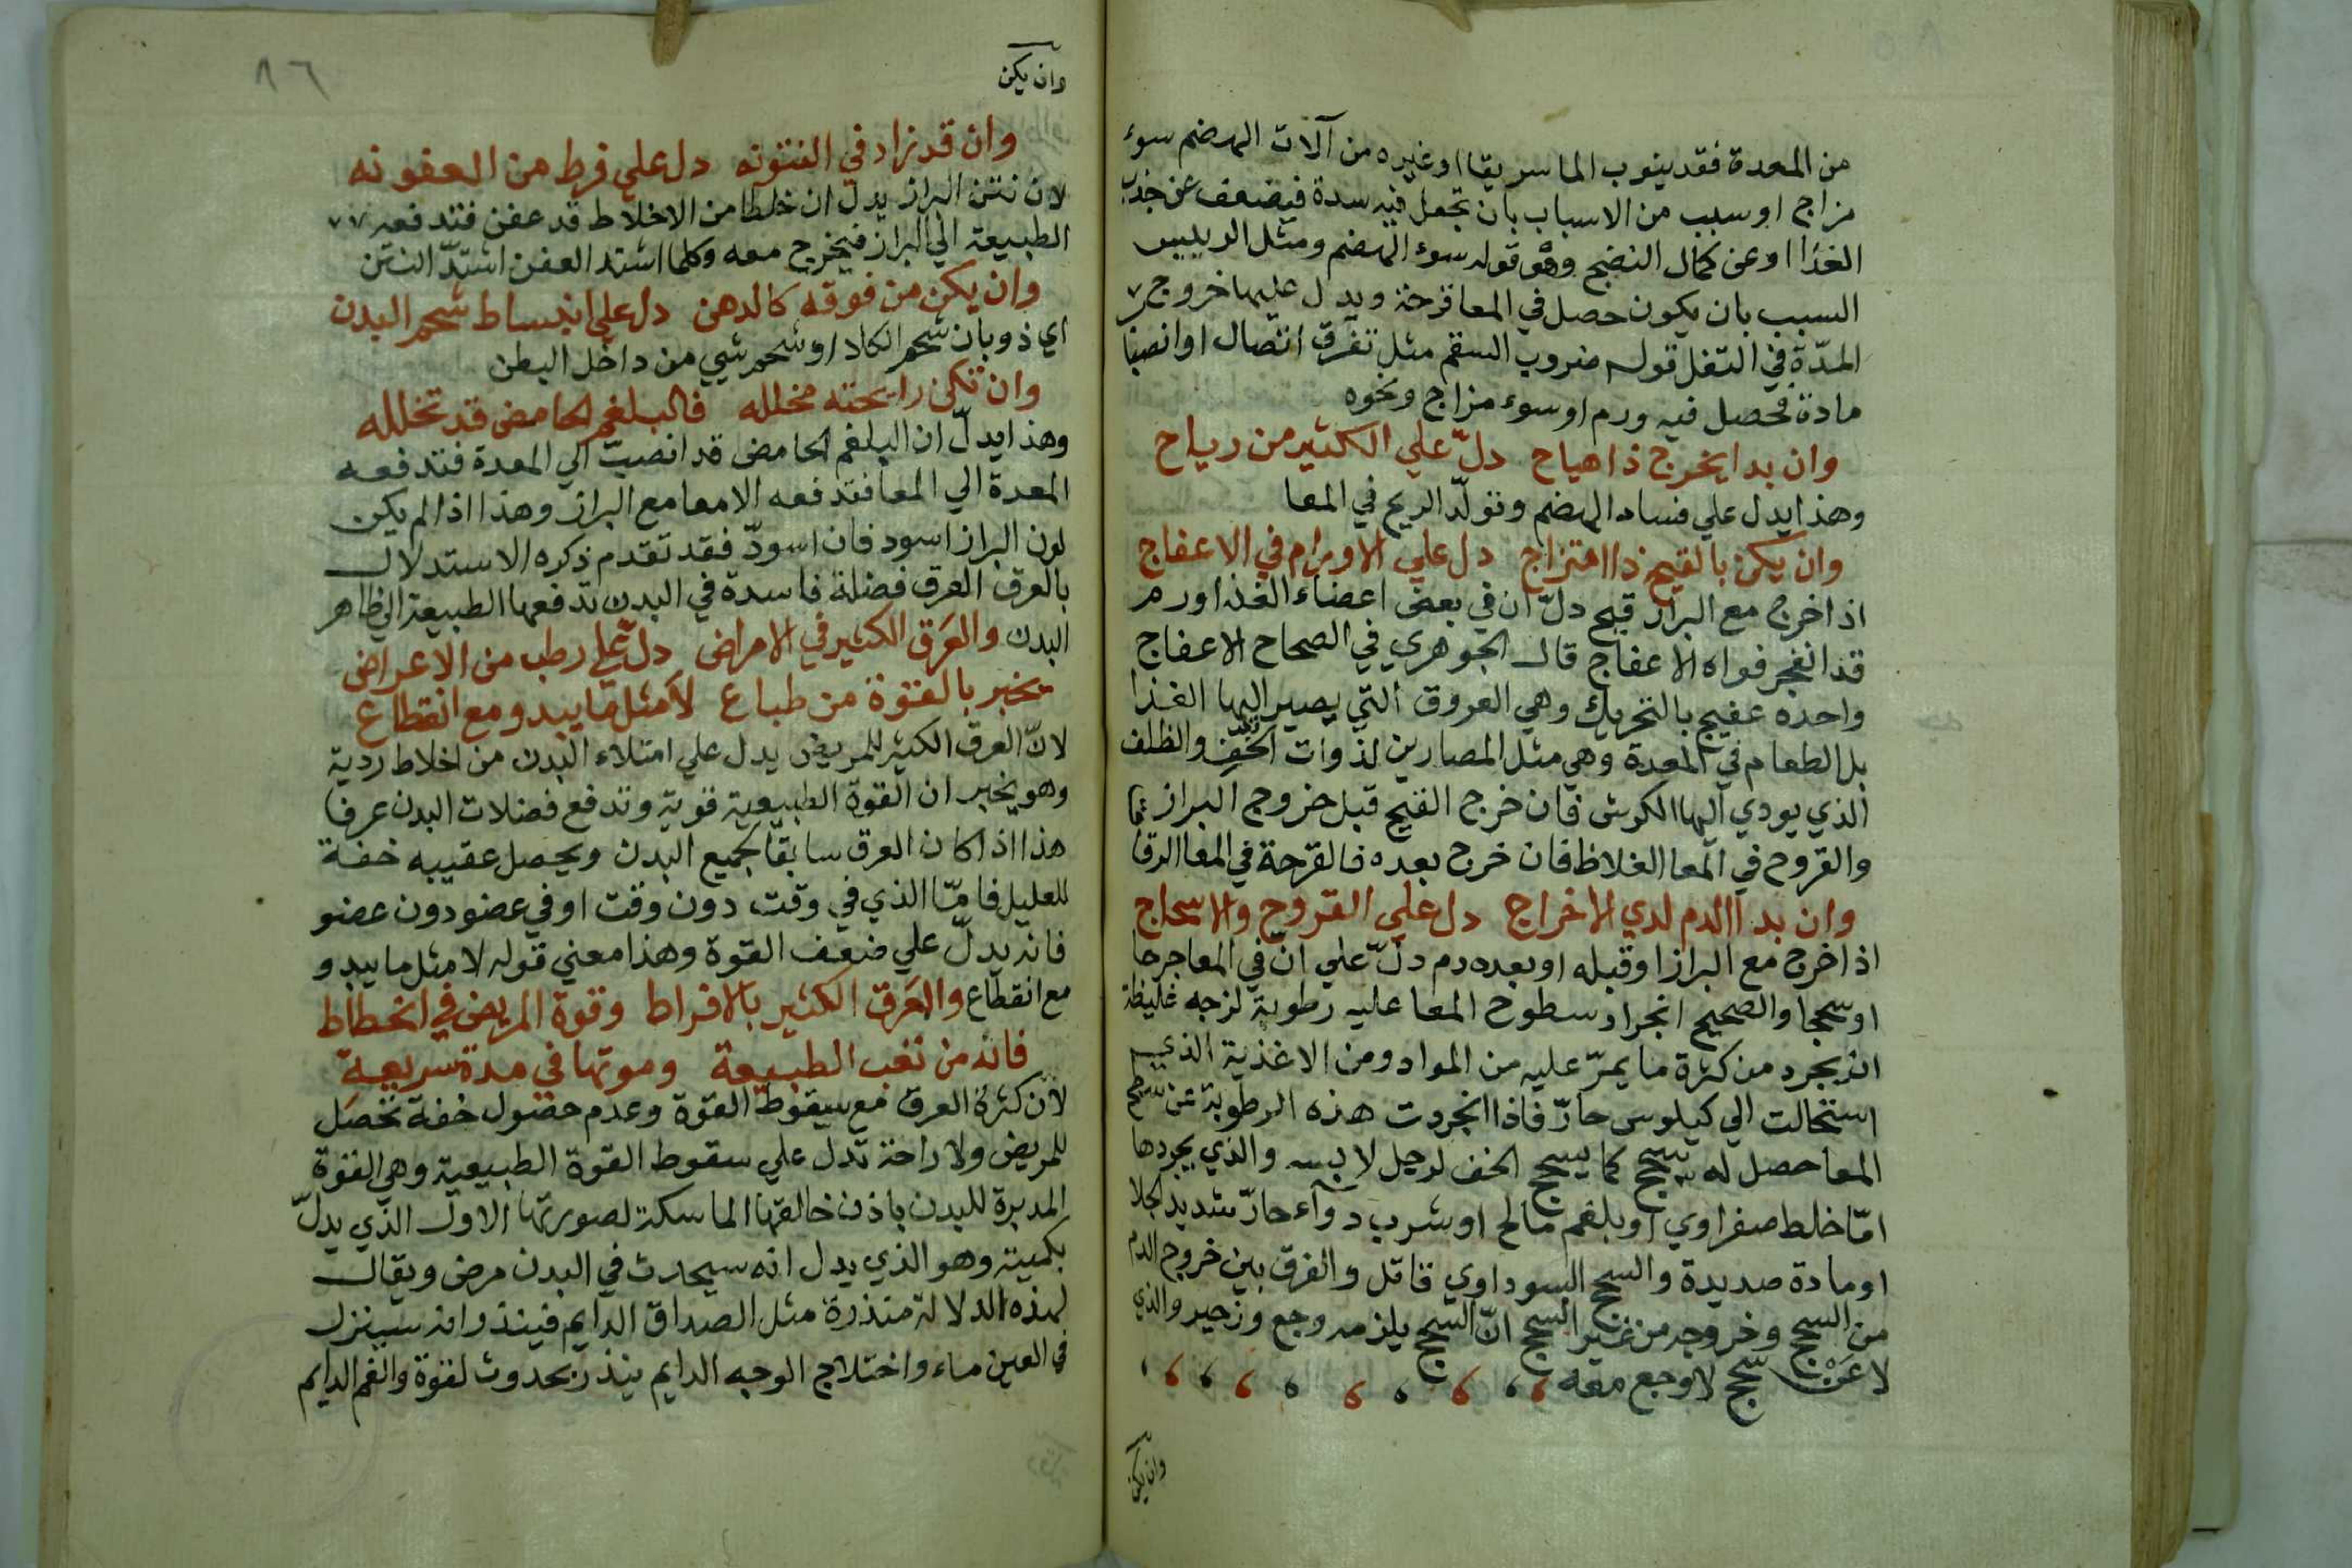 من المعدة فقد ينوب الماسريقا اوغيره من آلات الهضم سوء
مزاج او سبب من الاسباب بان تجعل فيه سدة فيضعف عن جذب
الغذا اوعن كمال النضج وهو قوله سوء الهضم ومثل الريليس
السبب بان يكون حصل في المعا قرحة ويدل عليها خروج
المدّة في التفل قوله ضروب السقم مثل تفرق اتصال او انصبا
مادة فحصل فيه ورم اوسوء مزاج ونحوه
وان بدا يخرج ذا هياح دلّ علي الكثير من رياح
وهذا يدل علي فساد الهضم وتولّد الريح في المعا
وان يكن بالقيح ذا امتزاج دل علي الاورام في الاعفاج
اذا خرج مع البراز قيح دلّ ان في بعض اعضاء الغذا ورم
قد انفجر فواه الاعفاج قال الجوهري في الصحاح الاعفاج
واحده عفيج بالتحريك وهي العروق التي يصير اليها الغذا
بل الطعام في المعدة وهي مثل المصارين لذوات الخفّ والظلف
الذي يودي اليها الكرش فان خرج القيح قبل خروج البراز
والقروح في المعا الغلاظ فان خرج بعده فالقرحة في المعا الرقا
وان بدا الدم لدي الاخراج دل علي القروح والاسحاج
اذا خرج مع البراز او قبله او بعده دم دلّ علي انّ في المعا جرحا
او سحجا والصحيح انجراد سطوح المعا عليه رطوبة لزجه غليظة
انجرد من كثرة ما يمرّ عليه من المواد ومن الاغذية الذي
استحالت الي كيلوس حارّ فاذا انجردت هذه الرطوبة عن سطح
المعا حصل له سحج كما يسحج الخف لرجل لابسه والذي يجردها
امّا خلط صفراوي او بلغم مالح او شرب دوآء حارّ شديد الجلا
او مادة صديدة والسحج السوداوي قاتل والفرق بين خروج الدم
من السحج وخروجه من غير السحج انّ السحج يلزمه وجع وزحير والذي
لا عَنْ سحج لا وجع معه
وان يكن
٨٦
وان يكن
وان قد زاد في النتونه دل علي فرط من العفونه
لان نتن البراز يدل ان خلطا من الاخلاط قد عفن فتدفعه
الطبيعة الي البراز فيخرج معه وكلما اشتد العفن اشتدّ النتن
وان يكن من فوقه كالدهن دل علي انبساط شحم البدن
اي ذوبان شحم الكلا او شحم شيي من داخل البطن
وان تكن رايحته مخلله فالبلغم الحامض قد تخلله
وهذا يدلّ ان البلغم الحامض قد انصبّ الي المعدة فتدفعه
المعدة الي المعا فتدفعه الامعا مع البراز وهذا اذا لم يكن
لون البراز اسود فان اسودّ فقد تقدم ذكره الاستدلال
بالعرق العرق فضلة فاسدة في البدن تدفعها الطبيعة الي ظاهر
البدن والعَرَق الكثير في الامراض دلّ علي رطب من الاعراض
تخبر بالقوة من طباع لا مثل ما يبدو مع انقطاع
لانّ العرق الكثير للمريض يدل علي امتلاء البدن من اخلاط ردية
وهو يخبر ان القوة الطبيعية قوية وتدفع فضلات البدن عرقا
هذا اذا كان العرق سابقا لجميع البدن ويحصل عقيبه خفة
للعليل فامّا الذي في وقت دون وقت او في عضو دون عضو
فانه يدلّ علي ضعف القوة وهذا معني قوله لا مثل ما يبدو
مع انقطاع والعَرَق الكثير بالافراط وقوة المريض في انحطاط
فانه من تعب الطبيعة وموتها في مدة سريعة
لانّ كثرة العرق مع سقوط القوة وعدم حصول خفة تحصل
للمريض ولا راحة تدل علي سقوط القوة الطبيعية وهي القوة
المدبرة للبدن باذن خالقها الماسكة لصورتها الاول الذي يدلّ
بكميته وهو الذي يدل انه سيحدث في البدن مرض ويقال
لهذه الدلالة منذرة مثل الصداق الدايم فينذر انه سينزل
في العين ماء واختلاج الوجه الدايم ينذر بحدوث لقوة والغم الدايم